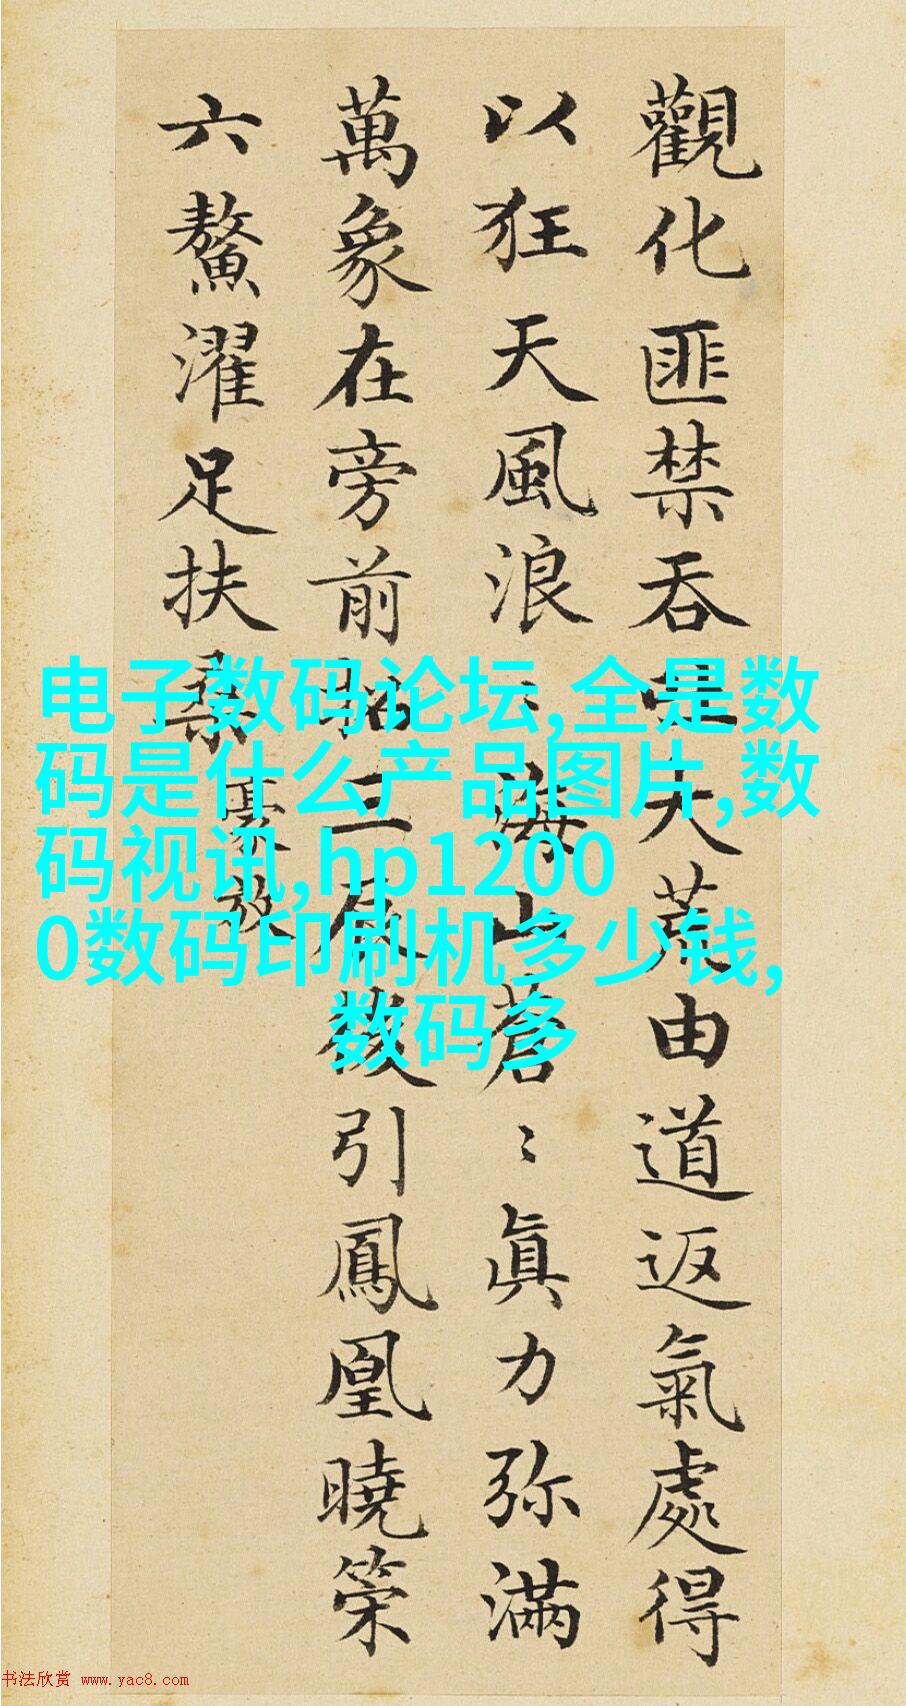 觀化匪禁吞吐大荒由道返氣處得
以狂天風浪〻海山蒼〻眞力弥滿
萬象在旁前招三辰後引鳳凰曉策
六鰲濯足扶桑
豪放
电子数码论坛,全是数
码是什么产品图片,数
码视讯,hp1200
0数码印刷机多少钱,
数码多
书法欣赏 www.yac8.com